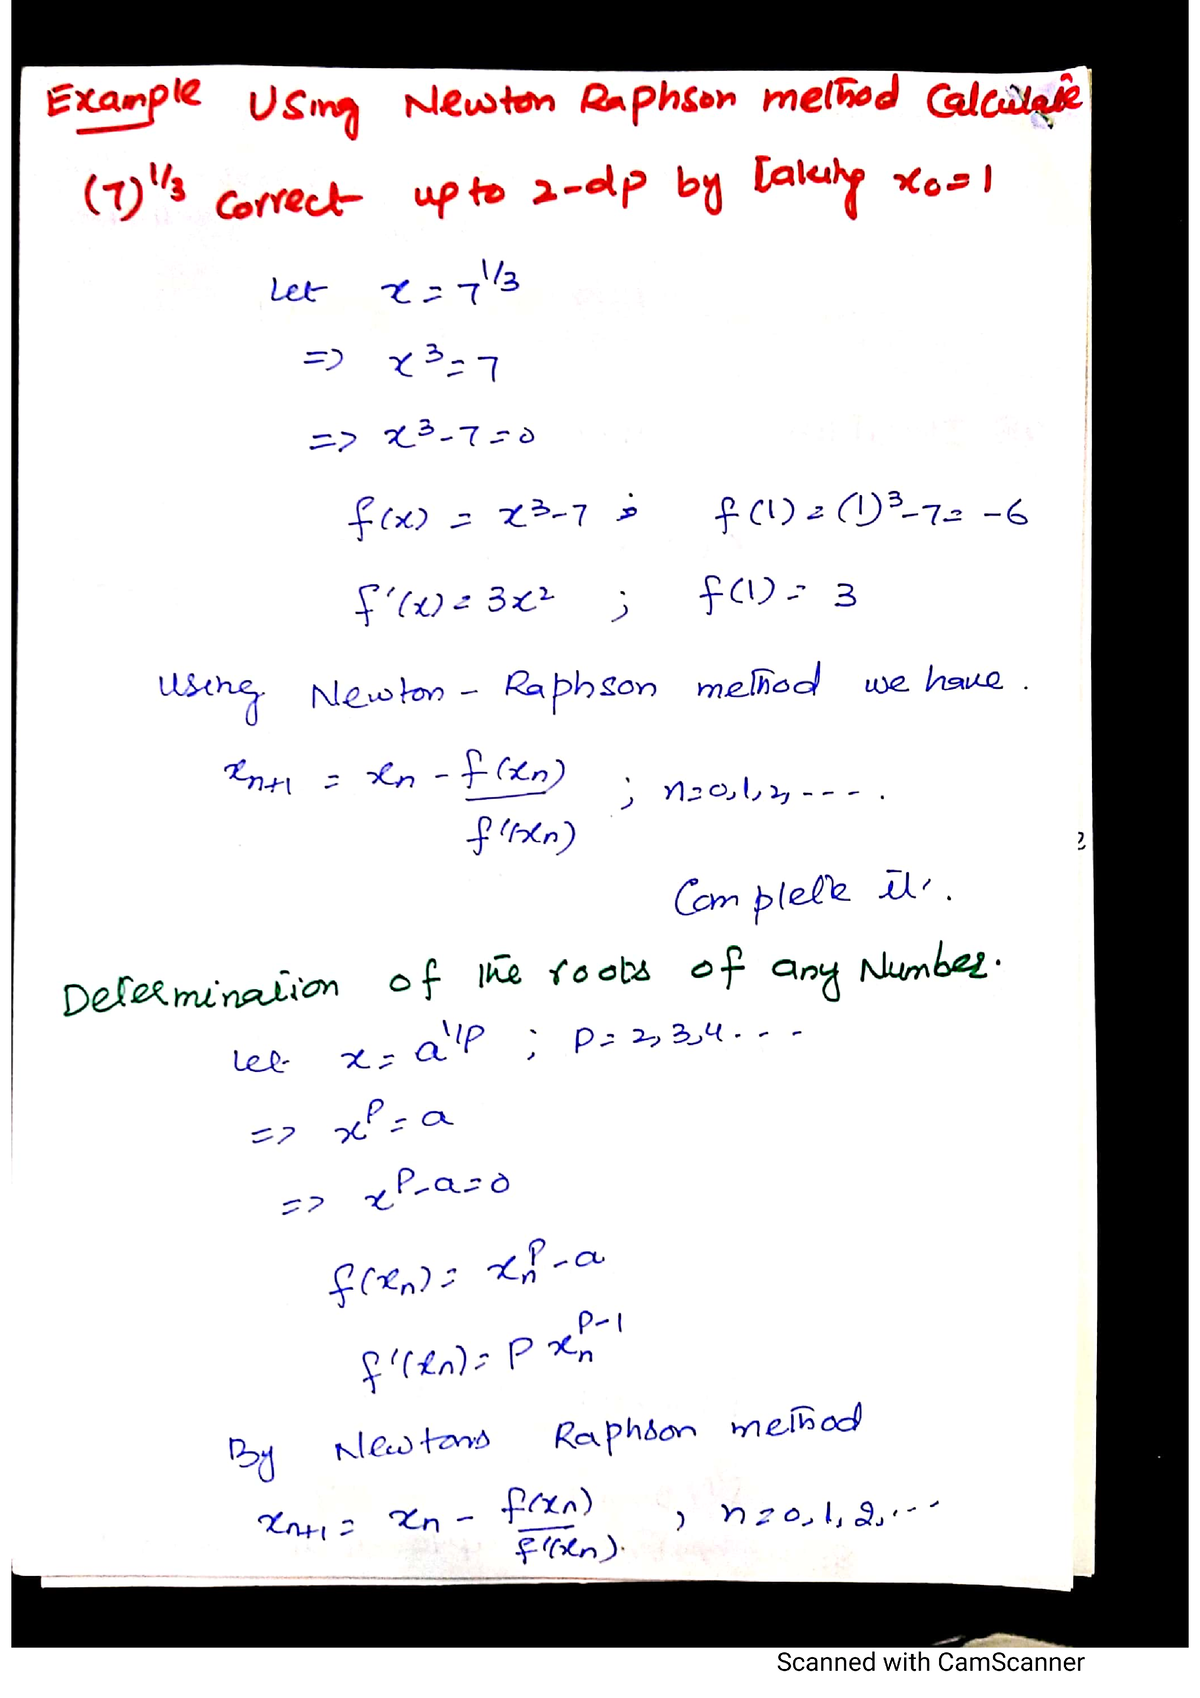 Example Using Newton Raphson method Calculate
(7)^1/3 correct upto 2-dp by taking x₀=1
Let x = 7^1/3
=> x³=7
=> x³-7=0
f(x) = x³-7 ; f(1) = (1)³-7= -6
f'(x) = 3x² ; f(1) = 3
Using Newton - Raphson method we have.
xₙ₊₁ = xₙ - f(xₙ)/f'(xₙ) ; n=0,1,2,----.
Complete it.
Determination of the roots of any Number.
Let x = a^1/P ; P=2,3,4...
=> x^P = a
=> x^P-a=0
f(xₙ) = xₙ^P-a
f'(xₙ) = P xₙ^P-1
By Newtons Raphson method
xₙ₊₁ = xₙ - f(xₙ)/f'(xₙ). , n=0,1,2,...
Scanned with CamScanner